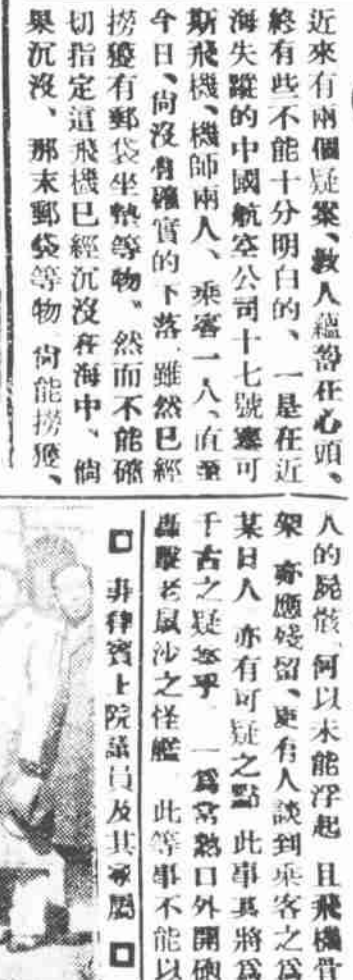 近來有兩個疑案、教人蘊畜在心頭、
終有些不能十分明白的、一是在近
海失蹤的中國航空公司十七號塞可
斯飛機、機師兩人、乘客一人、直至
今日、尙沒有確實的下落、雖然已經
撈獲有郵袋坐墊等物、然而不能確
切指定這飛機已經沉沒在海中、倘
果沉沒、那末郵袋等物、尙能撈獲、
人的屍骸、何以未能浮起 且飛機骨
架 亦應殘留、更有人談到乘客之爲
某日人 亦有可疑之點 此事其將爲
千古之疑 乎 一爲常熟口外開砲
轟擊老鼠沙之怪艦 此等事不能以
□ 菲律賓上院議員及其 屬 □